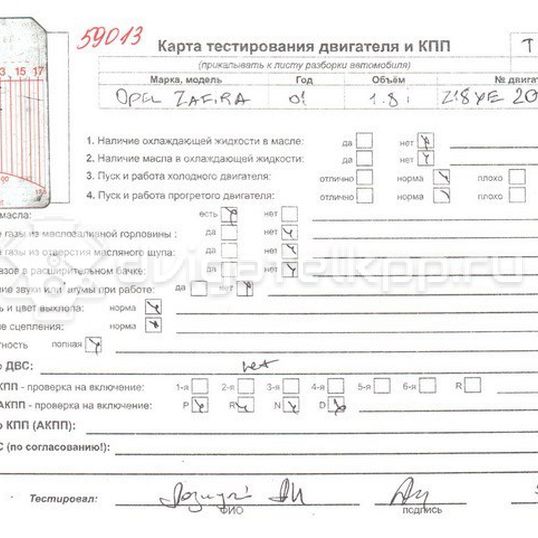 59013
Карта тестирования двигателя и КПП
Т
(прикалывать к листу разборки автомобиля)
3 15 17
Марка, модель Год Объём № двигат
OPEL ZAFIRA 01 1.8i Z18XE 20
1. Наличие охлаждающей жидкости в масле: да нет
2. Наличие масла в охлаждающей жидкости: да нет
3. Пуск и работа холодного двигателя: отлично норма плохо
4. Пуск и работа прогретого двигателя: отлично норма плохо
масла: есть нет
е газы из маслозаливной горловины : да нет
е газы из отверстия масляного щупа: да нет
азов в расширительном бачке: да нет
ние звуки или шумы при работе: да нет
ь и цвет выхлопа: норма
ие сцепления: норма
тность полная
о ДВС: нет
КПП - проверка на включение: 1-я 2-я 3-я 4-я 5-я 6-я R
АКПП - проверка на включение: P R N D
о КПП (АКПП):
С (по согласованию!):
Тестировал:
ФИО подпись
dvigatelkpp.ru